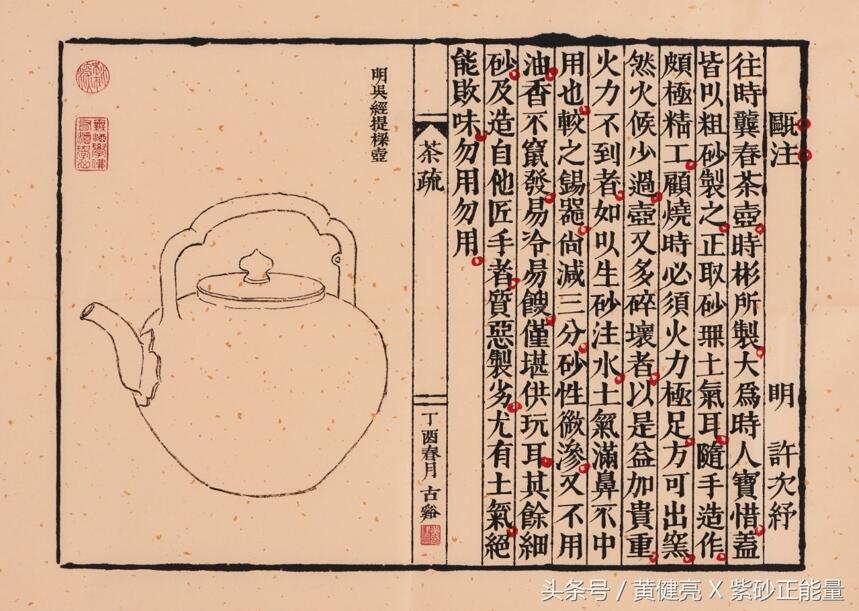 甌注 明 許次紓
往時龔春茶壺時彬所製大爲時人寶惜蓋
皆㕥粗砂製之正取砂無土氣耳隨手造作
頗極精工顧燒時必須火力極足方可出窯
然火候少過壺又多碎壞者以是益加貴重
火力不到者如㕥生砂注水土氣滿鼻不中
用也較之錫器尚減三分砂性微滲又不用
油香不竄發易冷易餿僅堪供玩耳其餘細
砂及造自他匠手者質惡製劣尤有土氣絕
能敗味勿用勿用
茶疏
丁酉春月 古谿
明吳經提樑壺
头条号 / 黄健亮 X 紫砂正能量